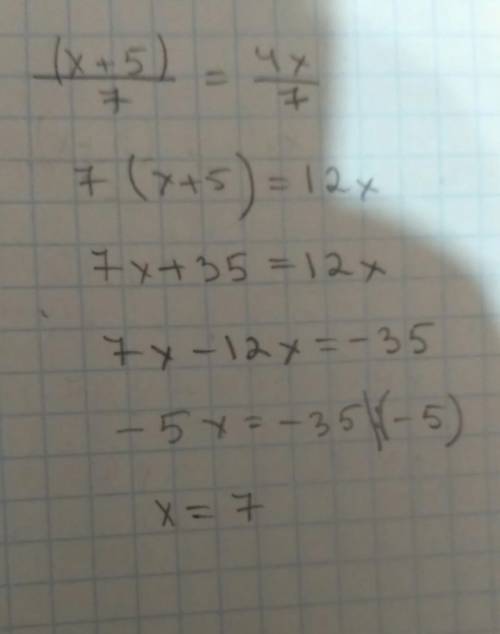 (x+5)/7 = 4x/7
7(x+5)=12x
7x+35=12x
7x-12x=-35
-5x=-35|:(-5)
x=7